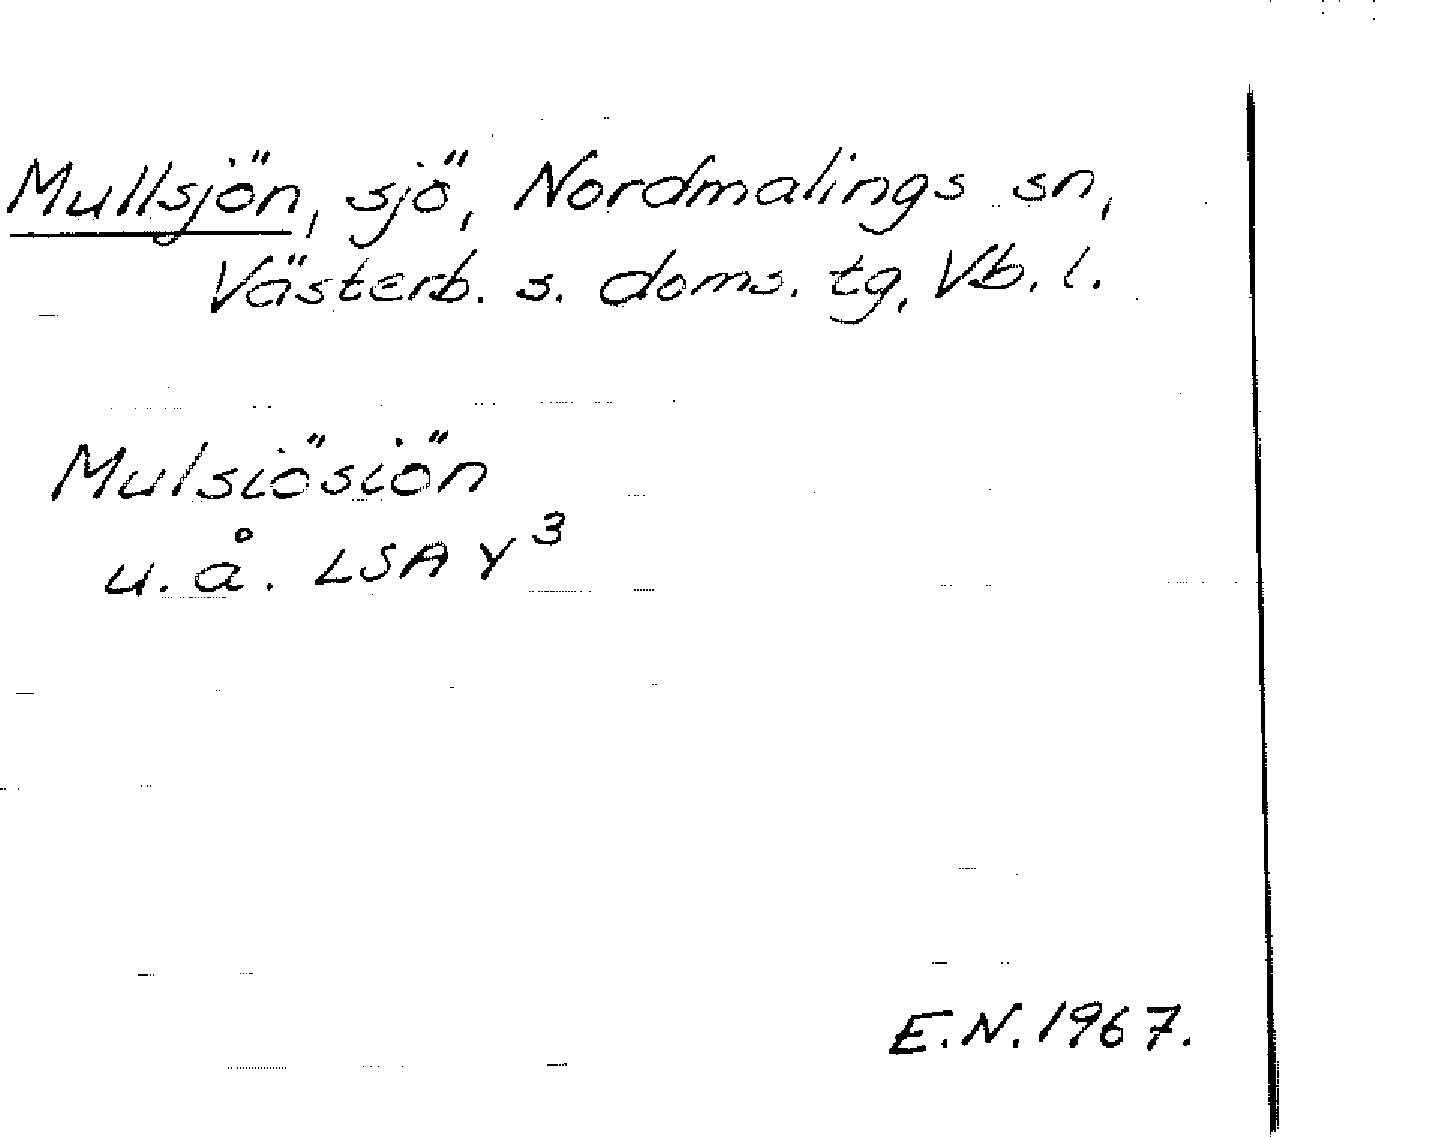 Mullsjön, sjö, Nordmalings sn,
Västerb. s. doms. tg, Vb. l.
Mulsiösiön
u. å. LSA Y³
E.N. 1967.